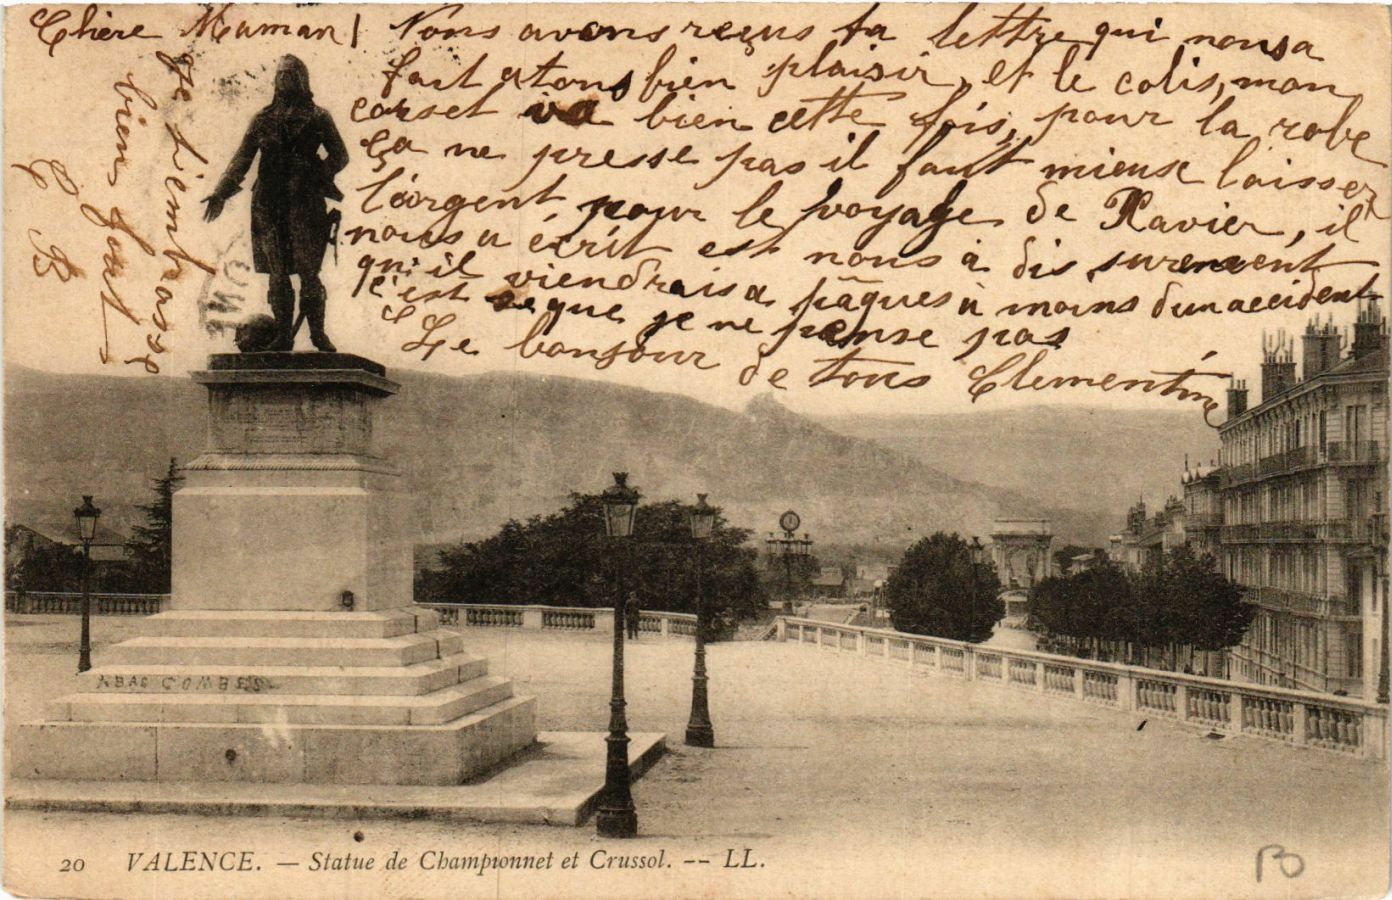 Chère Maman / Nous avons reçus ta lettre qui nous a
fait a tous bien plaisir, et le colis, mon
corset va bien cette fois, pour la robe
ça ne presse pas il faut mieux laisser
l'argent pour le voyage de Xavier, il
nous a écrit est nous a dis surement
qu'il viendrais a pâques a moins d'un accident
c'est se que je ne pense pas
Le bonjour de tous Clementine
Je t'embrasse
bien fort
C B
ABAS COMBES
20 VALENCE. — Statue de Championnet et Crussol. -- LL.